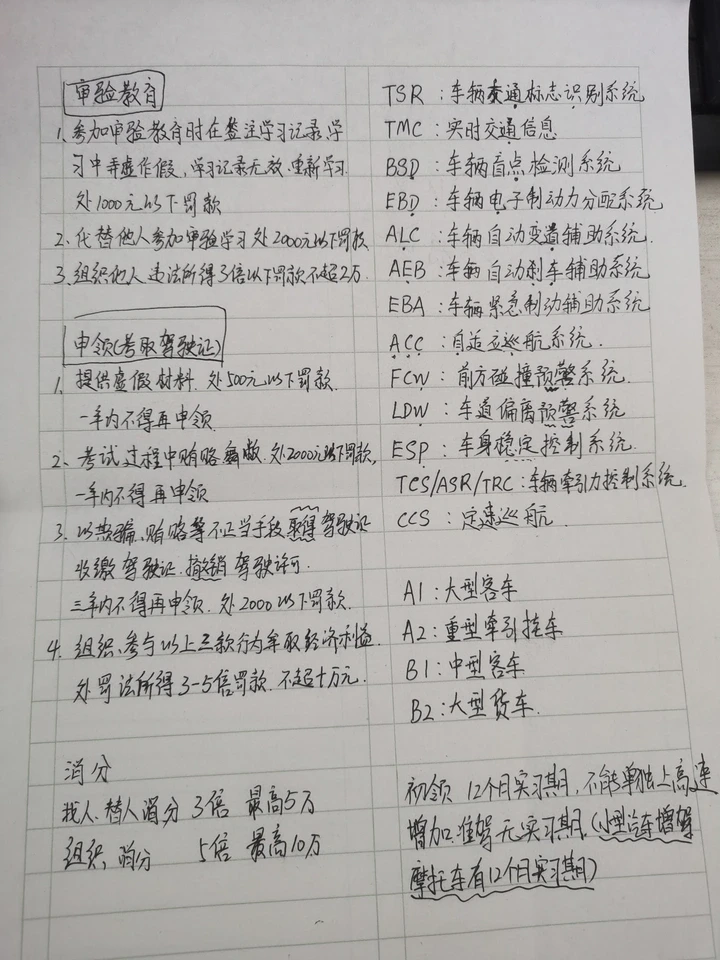 审验教育
1、参加审验教育时在签注学习记录、学
习中弄虚作假,学习记录无效.重新学习.
处1000元以下罚款
2、代替他人参加审验学习处2000元以下罚款
3、组织他人违法所得3倍以下罚款不超2万.
申领(考取驾驶证)
1、提供虚假材料.处500元以下罚款.
一年内不得再申领.
2、考试过程中贿赂舞弊.处2000元以下罚款,
一年内不得再申领
3、以欺骗、贿赂等不正当手段取得驾驶证
收缴驾驶证.撤销驾驶许可.
三年内不得再申领.处2000以下罚款.
4、组织、参与以上三款行为牟取经济利益
处罚法所得3-5倍罚款.不超十万元.
消分
找人.替人消分 3倍 最高5万
组织,消分 5倍 最高10万
TSR:车辆交通标志识别系统
TMC:实时交通信息
BSD:车辆盲点检测系统
EBD:车辆电子制动力分配系统
ALC:车辆自动变道辅助系统.
AEB:车辆自动刹车辅助系统
EBA:车辆紧急制动辅助系统
ACC:自适应巡航系统.
FCW:前方碰撞预警系统.
LDW:车道偏离预警系统
ESP:车身稳定控制系统.
TCS/ASR/TRC:车辆牵引力控制系统.
CCS:定速巡航.
A1:大型客车
A2:重型牵引挂车
B1:中型客车
B2:大型货车.
初领 12个月实习期,不能单独上高速
增加.准驾无实习期.(小型汽车增驾
摩托车有12个月实习期)